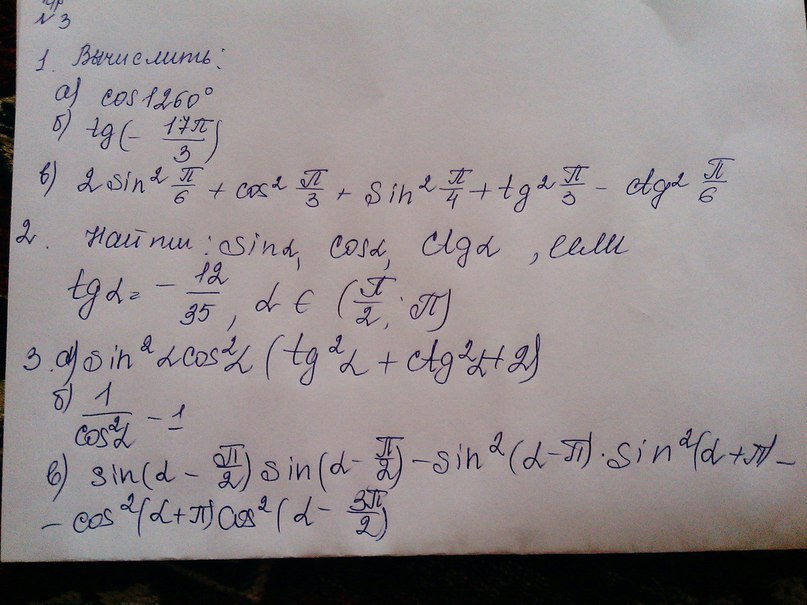 № 3
1. Вычислить:
а) cos1260°
б) tg(- 17π/3)
в) 2 sin² π/6 + cos² π/3 + sin² π/4 + tg² π/3 - ctg² π/6
2. Найти: sinα, cosα, ctgα, если
tgα = - 12/35, α ∈ (π/2; π)
3. а) sin²αcos²α (tg²α + ctg²α+2)
б) 1/cos²α - 1
в) sin(α - π/2) sin(α - π/2) - sin²(α-π)·sin²(α+π) -
- cos²(α+π)cos²(α - 3π/2)